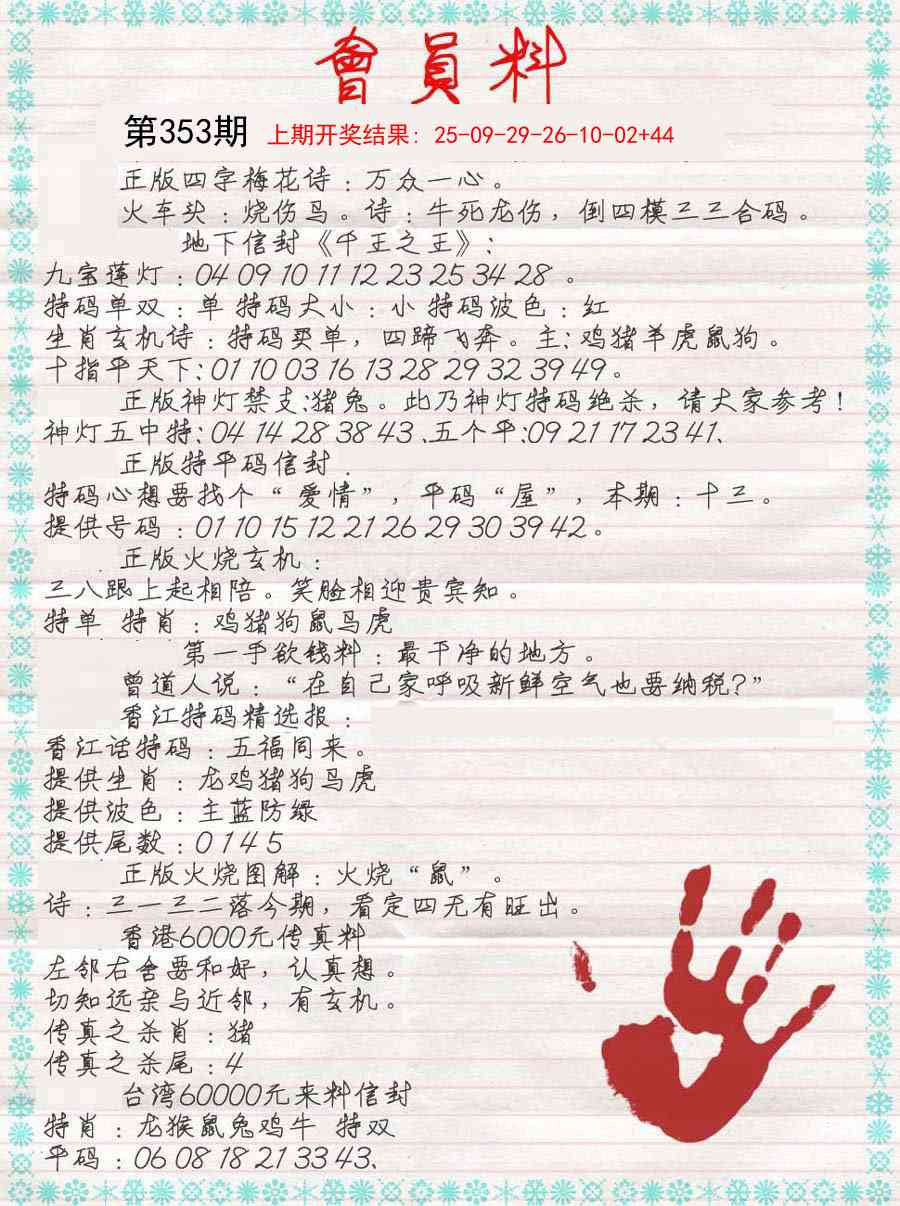 會員料
第353期 上期开奖结果: 25-09-29-26-10-02+44
正版四字梅花诗：万众一心。
火车头：烧伤鸟。诗：牛死龙伤，倒四模三三合码。
地下信封《千王之王》:
九宝莲灯：04 09 10 11 12 23 25 34 28 。
特码单双：单 特码大小：小 特码波色：红
生肖玄机诗：特码买单，四蹄飞奔。主: 鸡猪羊虎鼠狗。
十指平天下: 01 10 03 16 13 28 29 32 39 49。
正版神灯禁支:猪兔。此乃神灯特码绝杀，请大家参考！
神灯五中特: 04 14 28 38 43 、五个平:09 21 17 23 41、
正版特平码信封．
特码心想要找个“爱情”，平码“屋”，本期：十三。
提供号码：01 10 15 12 21 26 29 30 39 42。
正版火烧玄机：
三八跟上起相陪。笑脸相迎贵宾知。
特单 特肖：鸡猪狗鼠马虎
第一手欲钱料：最干净的地方。
曾道人说：“在自己家呼吸新鲜空气也要纳税?”
香江特码精选报：
香江话特码：五福同来。
提供生肖：龙鸡猪狗马虎
提供波色：主蓝防绿
提供尾数：0 1 4 5
正版火烧图解：火烧“鼠”。
诗：三一三二落今期，看定四无有旺出。
香港6000元传真料
左邻右舍要和好，认真想。
切知远亲与近邻，有玄机。
传真之杀肖：猪
传真之杀尾：4
台湾60000元来料信封
特肖：龙猴鼠兔鸡牛 特双
平码：06 08 18 21 33 43、